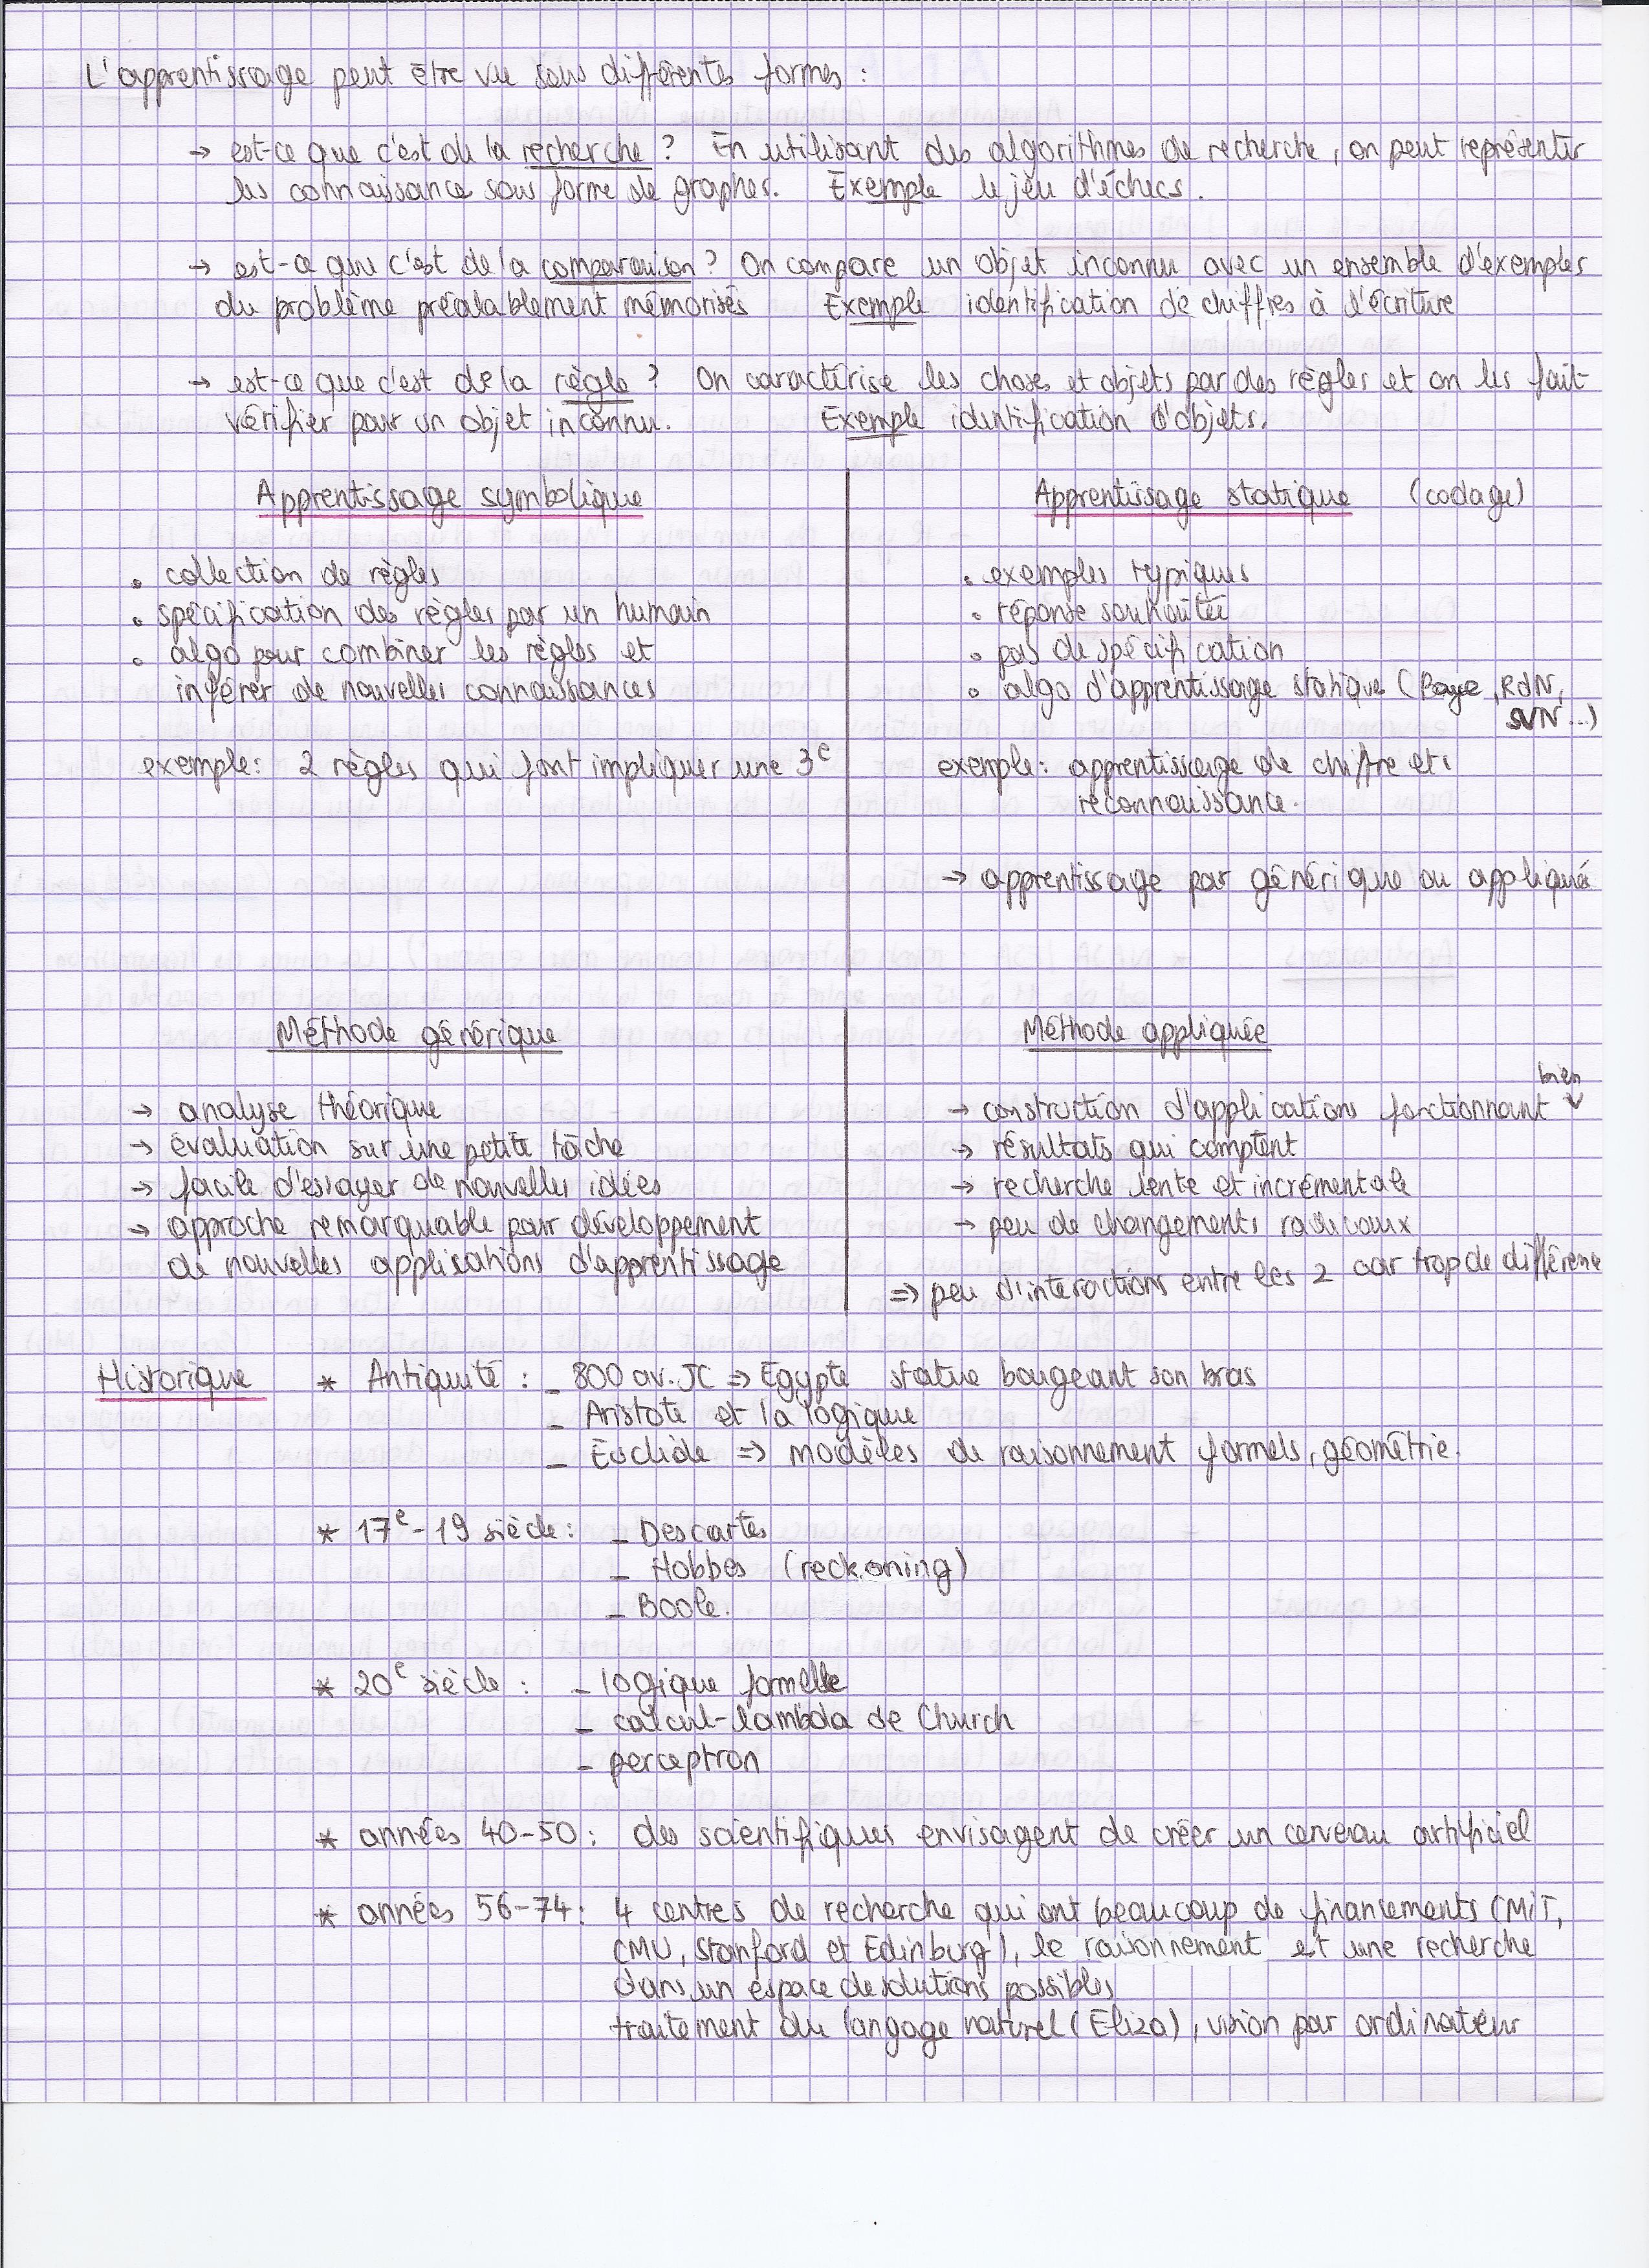 L'apprentissage peut être vu sous différentes formes :
→ est-ce que c'est de la recherche ? En utilisant des algorithmes de recherche, on peut représenter
les connaissance sous forme de graphes. Exemple le jeu d'échecs.
→ est-ce que c'est de la comparaison ? On compare un objet inconnu avec un ensemble d'exemples
du problème préalablement mémorisés Exemple identification de chiffres à l'écriture
→ est-ce que c'est de la règle ? On caractérise les choses et objets par des règles et on les fait
vérifier pour un objet inconnu. Exemple identification d'objets.
Apprentissage symbolique
• collection de règles
• spécification des règles par un humain
• algo pour combiner les règles et
inférer de nouvelles connaissances
exemple: 2 règles qui font impliquer une 3e
Apprentissage statique (codage)
• exemples typiques
• réponse souhaitée
• pas de spécification
• algo d'apprentissage statique (Baye, RdN,
SVN ...)
exemple: apprentissage de chiffre et
reconnaissance.
→ apprentissage par générique ou appliqué
Méthode générique
→ analyse théorique
→ évaluation sur une petite tâche
→ facile d'essayer de nouvelles idées
→ approche remarquable pour développement
de nouvelles applications d'apprentissage
Méthode appliquée
bien
→ construction d'applications fonctionnant ↓
→ résultats qui comptent
→ recherche lente et incrémentale
→ peu de changements radicaux
⇒ peu d'interactions entre les 2 car trop de différence
Historique * Antiquité : - 800 av. JC ⇒ Egypte statue bougeant son bras
- Aristote et la logique
- Euclide ⇒ modèles de raisonnement formels, géométrie.
* 17e-19 siècle : - Descartes
- Hobbes (reckoning)
- Boole.
* 20e siècle : - logique formelle
- calcul-lambda de Church
- perceptron
* années 40-50 : des scientifiques envisagent de créer un cerveau artificiel
* années 56-74 : 4 centres de recherche qui ont beaucoup de financements (MIT,
CMU, Stanford et Edinburg), le raisonnement est une recherche
dans un espace de solutions possibles
traitement du langage naturel (Eliza), vision par ordinateur